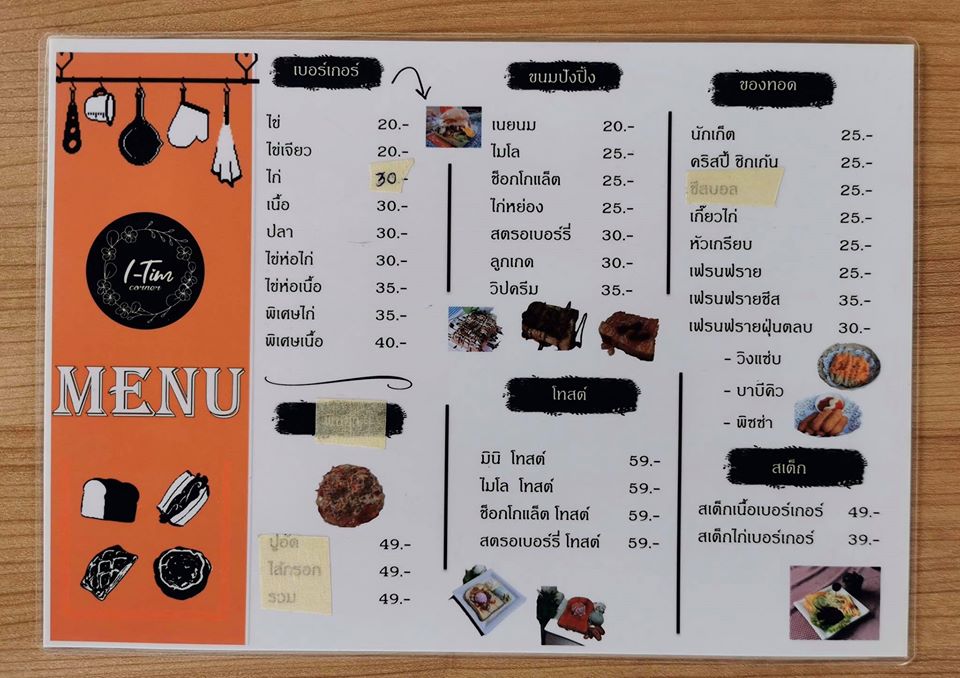 I-Tim
corner
MENU
เบอร์เกอร์
ไข่ 20.-
ไข่เจียว 20.-
ไก่ 30.-
เนื้อ 30.-
ปลา 30.-
ไข่ห่อไก่ 30.-
ไข่ห่อเนื้อ 35.-
พิเศษไก่ 35.-
พิเศษเนื้อ 40.-
ปูอัด 49.-
ไส้กรอก 49.-
รวม 49.-
ขนมปังปิ้ง
เนยนม 20.-
ไมโล 25.-
ช็อกโกแล็ต 25.-
ไก่หย่อง 25.-
สตรอเบอร์รี่ 30.-
ลูกเกด 30.-
วิปครีม 35.-
โทสต์
มินิ โทสต์ 59.-
ไมโล โทสต์ 59.-
ช็อกโกแล็ต โทสต์ 59.-
สตรอเบอร์รี่ โทสต์ 59.-
ของทอด
นักเก็ต 25.-
คริสปี้ ชิกเก้น 25.-
ชีสบอล 25.-
เกี๊ยวไก่ 25.-
หัวเกรียบ 25.-
เฟรนฟราย 25.-
เฟรนฟรายชีส 35.-
เฟรนฟรายฝุ่นตลบ 30.-
- วิงแซ่บ
- บาบีคิว
- พิซซ่า
สเต็ก
สเต็กเนื้อเบอร์เกอร์ 49.-
สเต็กไก่เบอร์เกอร์ 39.-